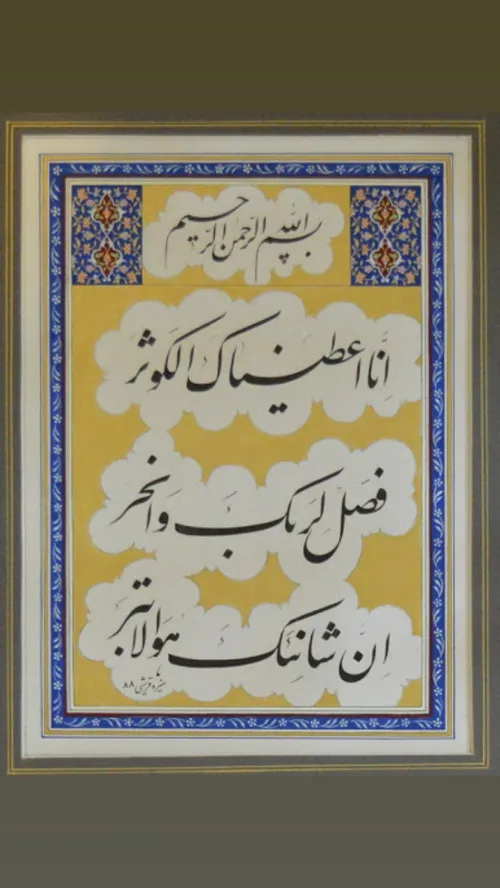 بسم الله الرحمن الرحیم
اِنَّا اعطیناکَ الکَوثَر
فَصَلِّ لِرَبِّکَ وَانحَر
اِنَّ شانِئَکَ هوَالاَبتَر
منیره قریشی ۸۸